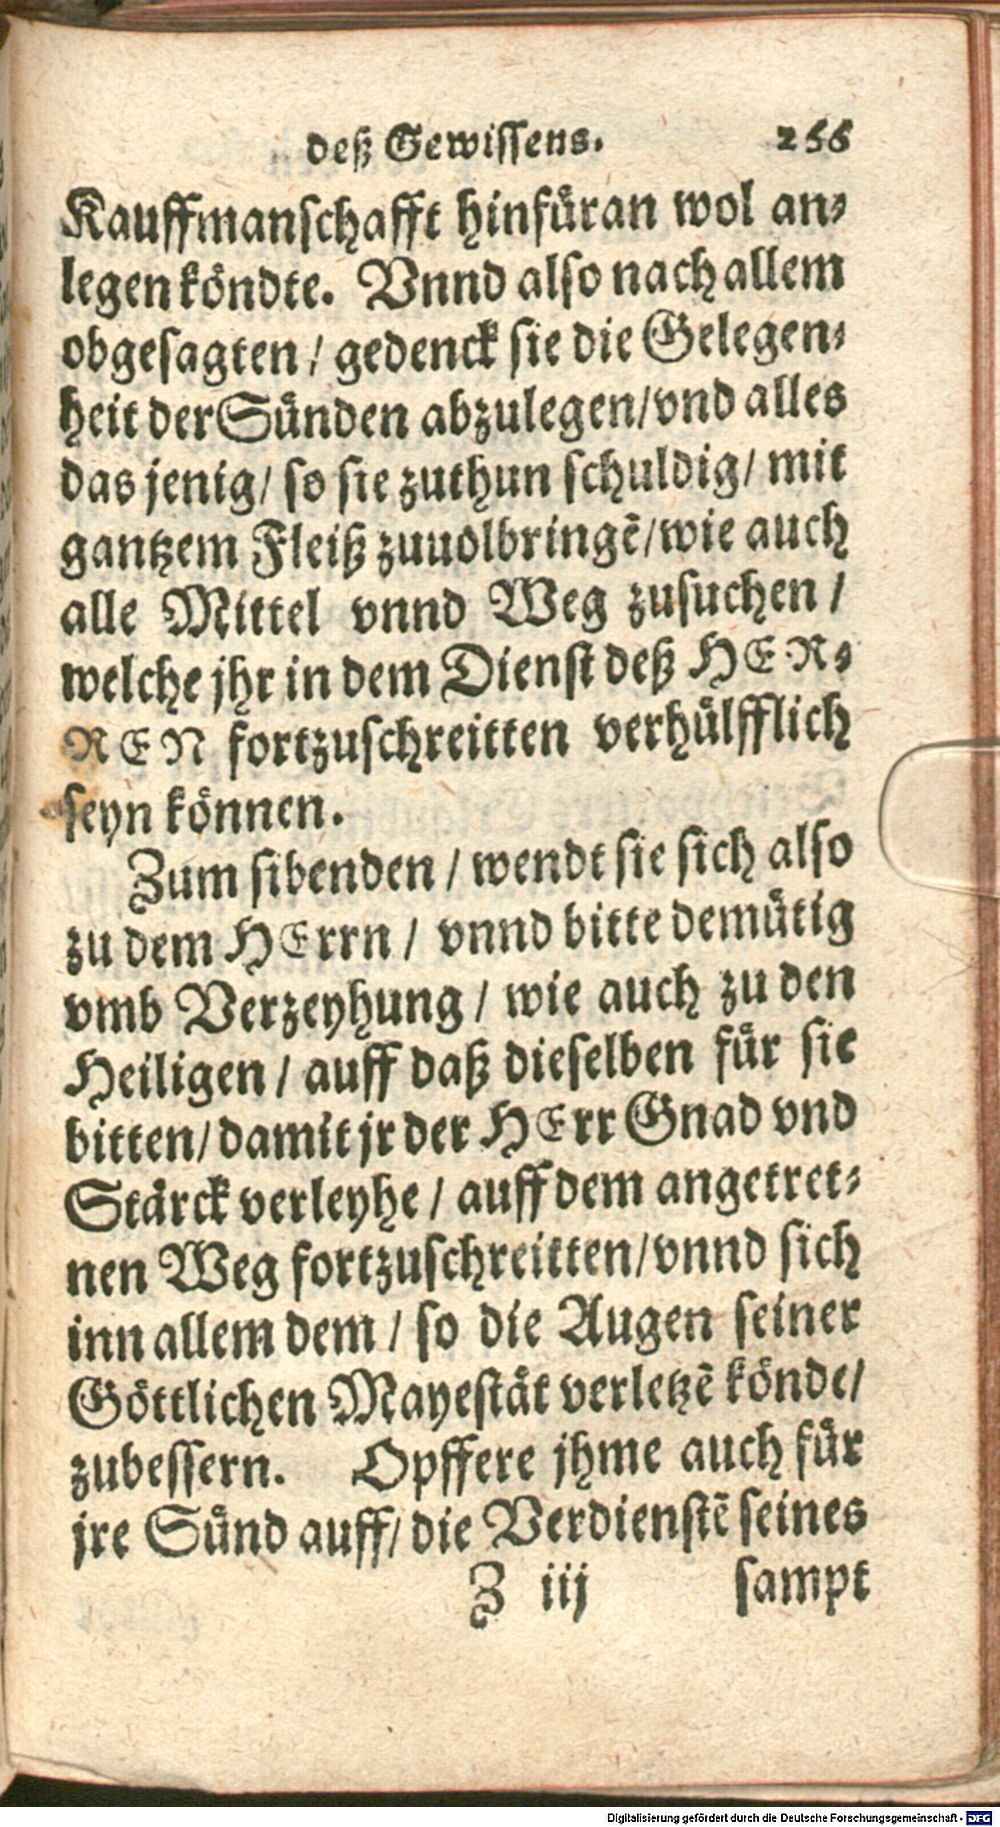 deß Gewissens. 256
Kauffmanschafft hinfüran wol an-
legen köndte. Vnnd also nach allem
obgesagten / gedenck sie die Gelegen-
heit der Sünden abzulegen/ vnd alles
das jenig/ so sie zuthun schuldig/ mit
gantzem Fleiß zuuolbringē/wie auch
alle Mittel vnnd Weg zusuchen /
welche jhr in dem Dienst deß HER-
REN fortzuschreitten verhülfflich
seyn können.
Zum sibenden / wendt sie sich also
zu dem HErrn / vnnd bitte demütig
vmb Verzeyhung / wie auch zu den
Heiligen / auff daß dieselben für sie
bitten/ damit jr der HErr Gnad vnd
Stärck verleyhe / auff dem angetret-
nen Weg fortzuschreitten/vnnd sich
inn allem dem / so die Augen seiner
Göttlichen Mayestät verletzē könde/
zubessern. Opffere jhme auch für
jre Sünd auff/ die Verdienstē seines
Z iij sampt
Digitalisierung gefördert durch die Deutsche Forschungsgemeinschaft - DFG